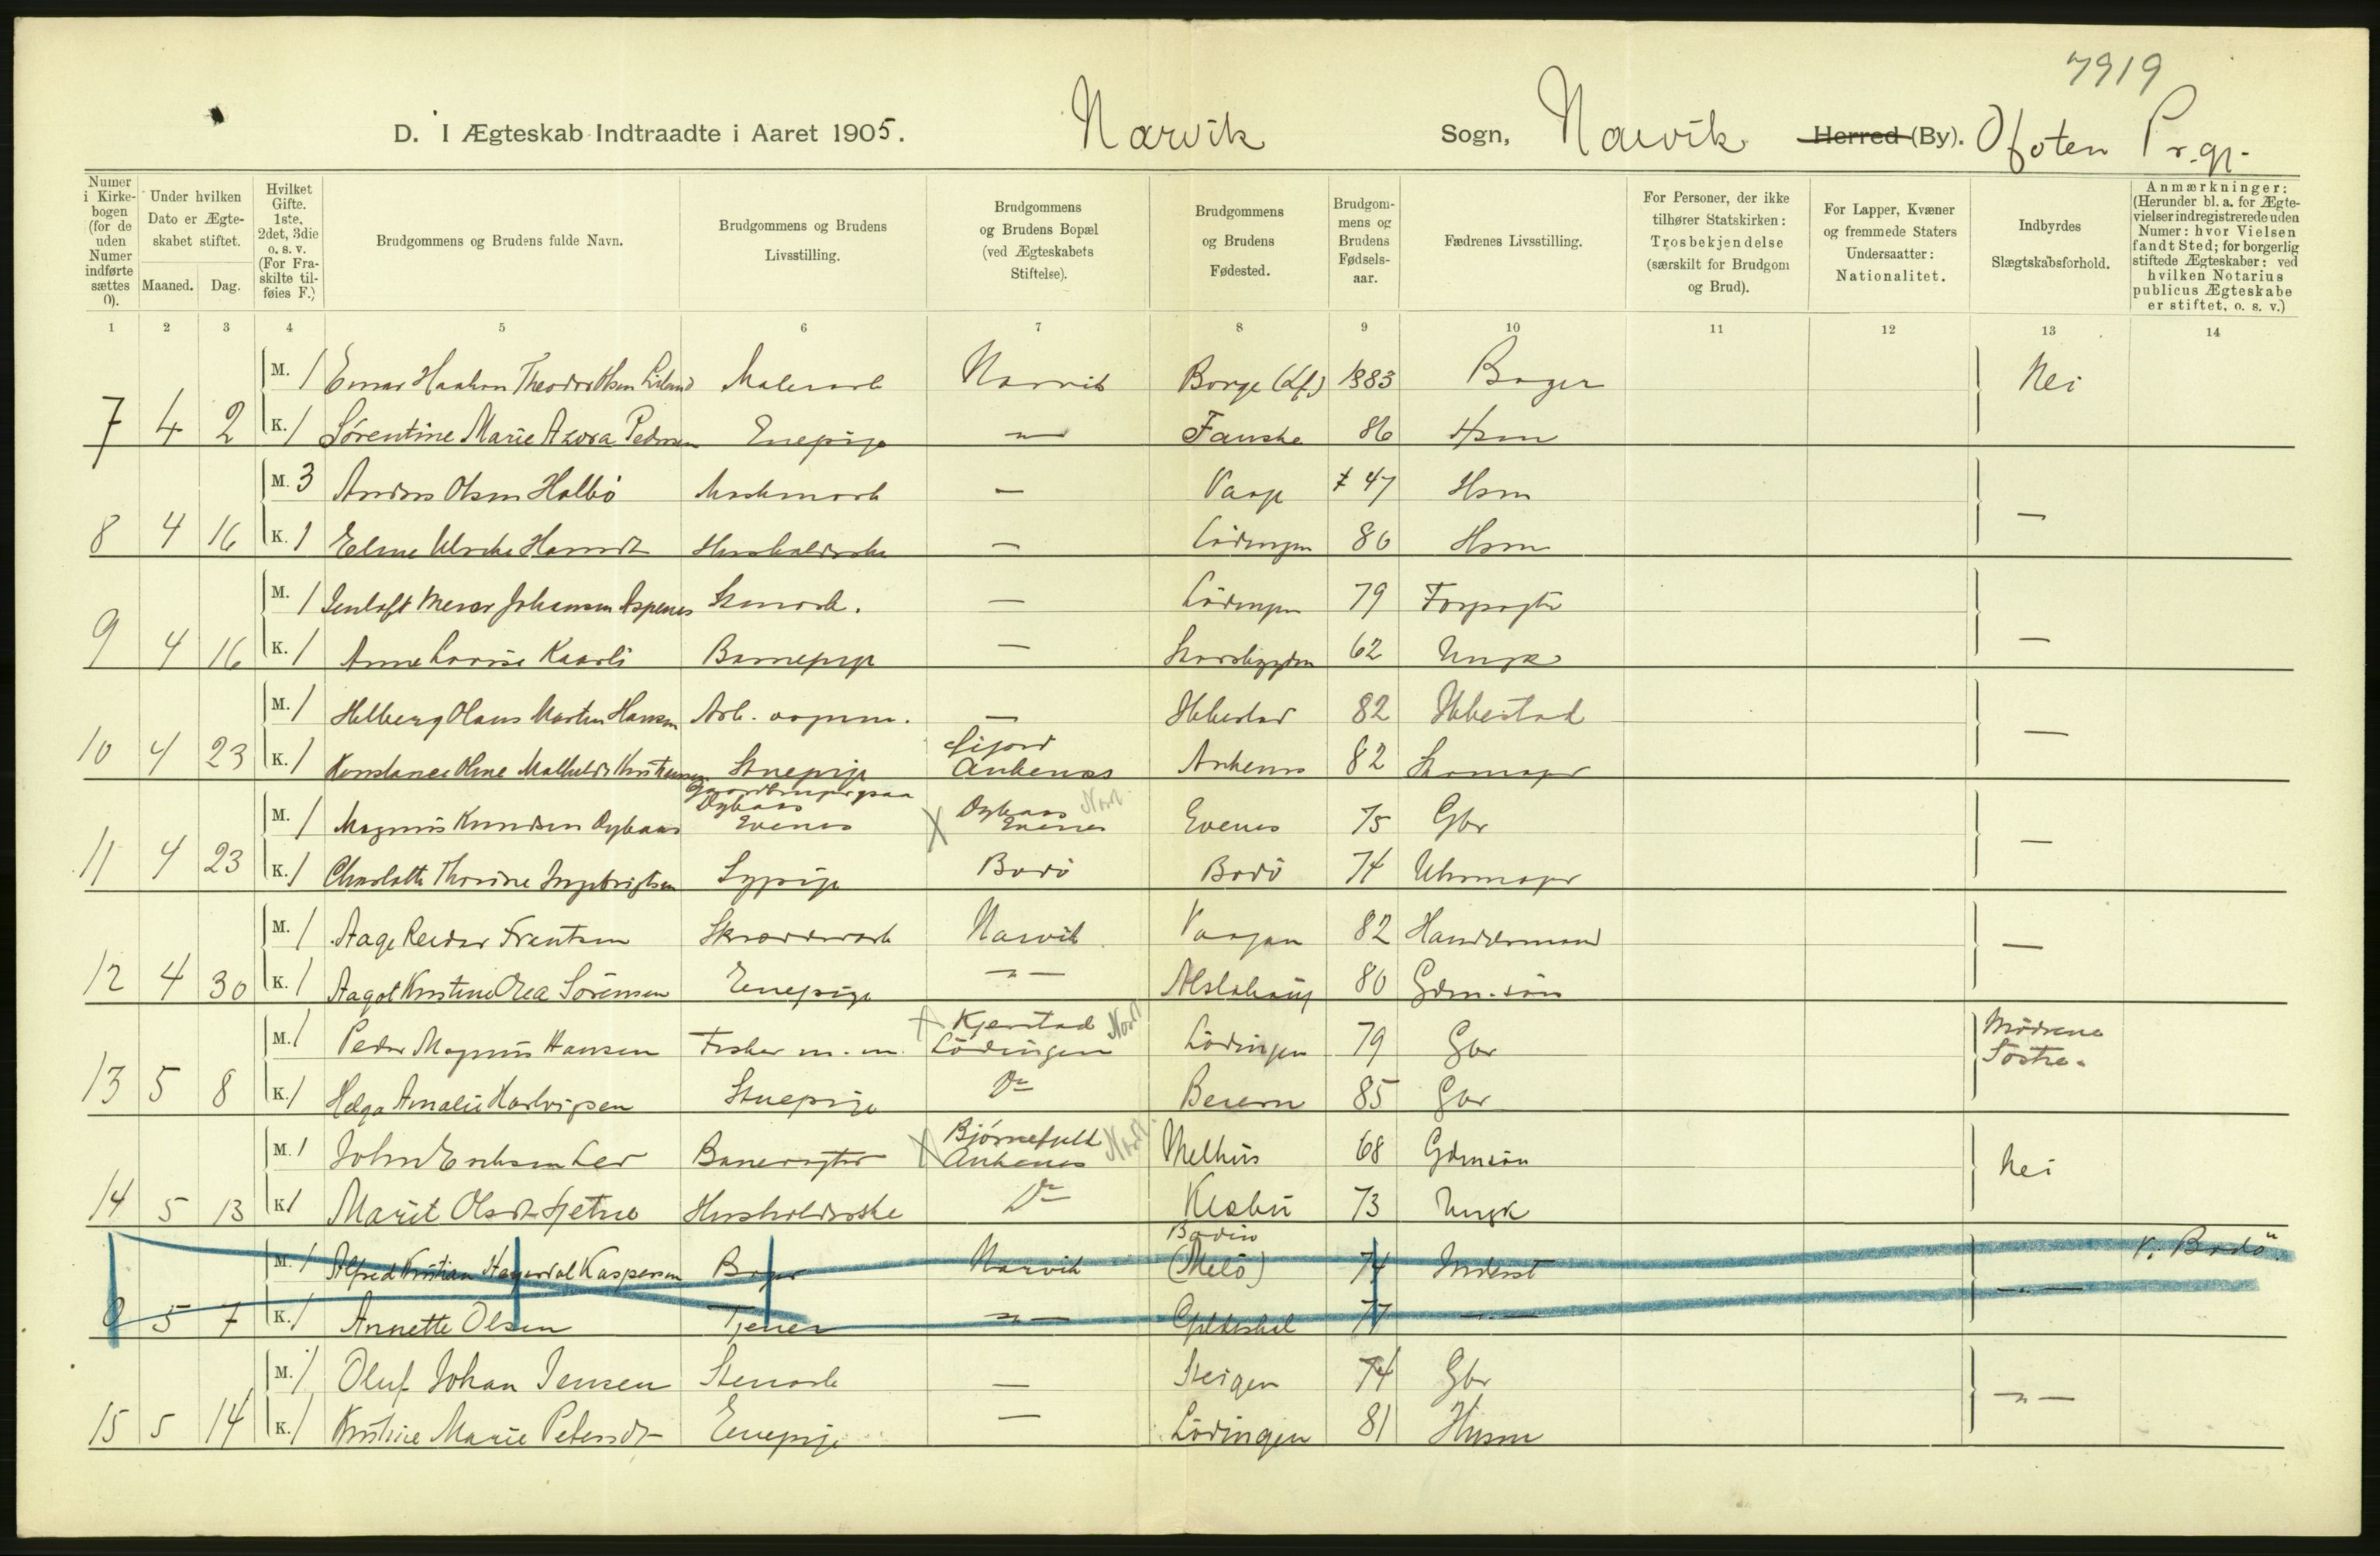 7919
D. I Ægteskab Indtraadte i Aaret 1905. Narvik Sogn, Narvik Herred (By). Ofoten Pr.gj.
Numer i Kirkebogen (for de uden Numer indførte sættes 0).
Under hvilken Dato er Ægteskabet stiftet.
Maaned. Dag.
Hvilket Gifte. 1ste, 2det, 3die o. s. v. (For Fraskilte tilføies F.)
Brudgommens og Brudens fulde Navn.
Brudgommens og Brudens Livsstilling.
Brudgommens og Brudens Bopæl (ved Ægteskabets Stiftelse).
Brudgommens og Brudens Fødested.
Brudgommens og Brudens Fødselsaar.
Fædrenes Livsstilling.
For Personer, der ikke tilhører Statskirken: Trosbekjendelse (særskilt for Brudgom og Brud).
For Lapper, Kvæner og fremmede Staters Undersaatter: Nationalitet.
Indbyrdes Slægtskabsforhold.
Anmærkninger: (Herunder bl. a. for Ægtevielser indregistrerede uden Numer: hvor Vielsen fandt Sted; for borgerlig stiftede Ægteskaber: ved hvilken Notarius publicus Ægteskabet er stiftet, o. s. v.)
1 2 3 4 5 6 7 8 9 10 11 12 13 14
M. 1 Einar Haakon Theodor Olsen Liland Malerarb Narvik Borge (Lf) 1883 Bager Nei
7 4 2 K. 1 Sørentine Marie Azora Pedersen Enepige -"- Fauske 86 Hsm
M. 3 Anders Olsen Halbö — Vaage 47 Hsm
8 4 16 K. 1 Eline Ulrike Hansdt Husholderske — Lödingen 80 Hsm —
M. 1 Johansen Aspenes Stenarb. — Lödingen 79 Forpagter
9 4 16 K. 1 Anne Lovise Kaarli Barnepige — 62 Ungk —
M. 1 Helberg Olaus Martin Hansen Arb. — Ibbestad 82 Ibbestad
10 4 23 K. 1 Konstance Oline Mathilde Kristensen Stuepige Ankenes Ankenes 82 Skomager —
M. 1 Magnus Knudsen Dybaas Gaardbruger paa Dybaas Evenes Dybaas Evenes Nord Evenes 75 Gbr
11 4 23 K. 1 Charlotte Thorine Ingebrigtsen Sypige Bodö Bodö 74 Uhrmager —
M. 1 Aage Reidar Frantsen Skrædderarb Narvik Vaagan 82 Handelsmand
12 4 30 K. 1 Aagot Kristine Olea Sörensen Enepige -"- Alstahaug 80 Gdm.sön —
M. 1 Peder Magnus Hansen Fisker m. m. Kjerstad Lödingen Nord Lödingen 79 Gbr Mödrene Söstre.
13 5 8 K. 1 Helga Amalie Hartvigsen Stuepige Do Beiern 85 Gbr
M. 1 John Eriksen Ler Banevogter Björnefjeld Ankenes Nord Melhus 68 Gdmsön Nei
14 5 13 K. 1 Marit Olsdt Gjetne Husholderske Do Klæbu 73 Ungk
M. 1 Alfred Kristian Kaspersen Bager Narvik Bodin (Melö) 74 Inderst v. Bodö
0 5 7 K. 1 Annette Olsen Tjener -"- Gildeskal 77 -"- -"-
M. 1 Oluf Johan Jensen Stenarb — Steigen 74 Gbr
15 5 14 K. 1 Kristine Marie Petersdt Enepige — Lödingen 81 Husm -"-